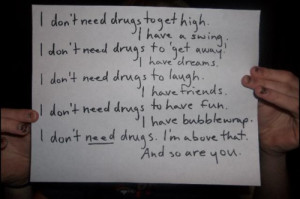 I don't need drugs to get high.
I have a swing.
I don't need drugs to 'get away!'
I have dreams.
I don't need drugs to laugh.
I have friends.
I don't need drugs to have fun.
I have bubblewrap.
I don't need drugs. I'm above that.
And so are you.